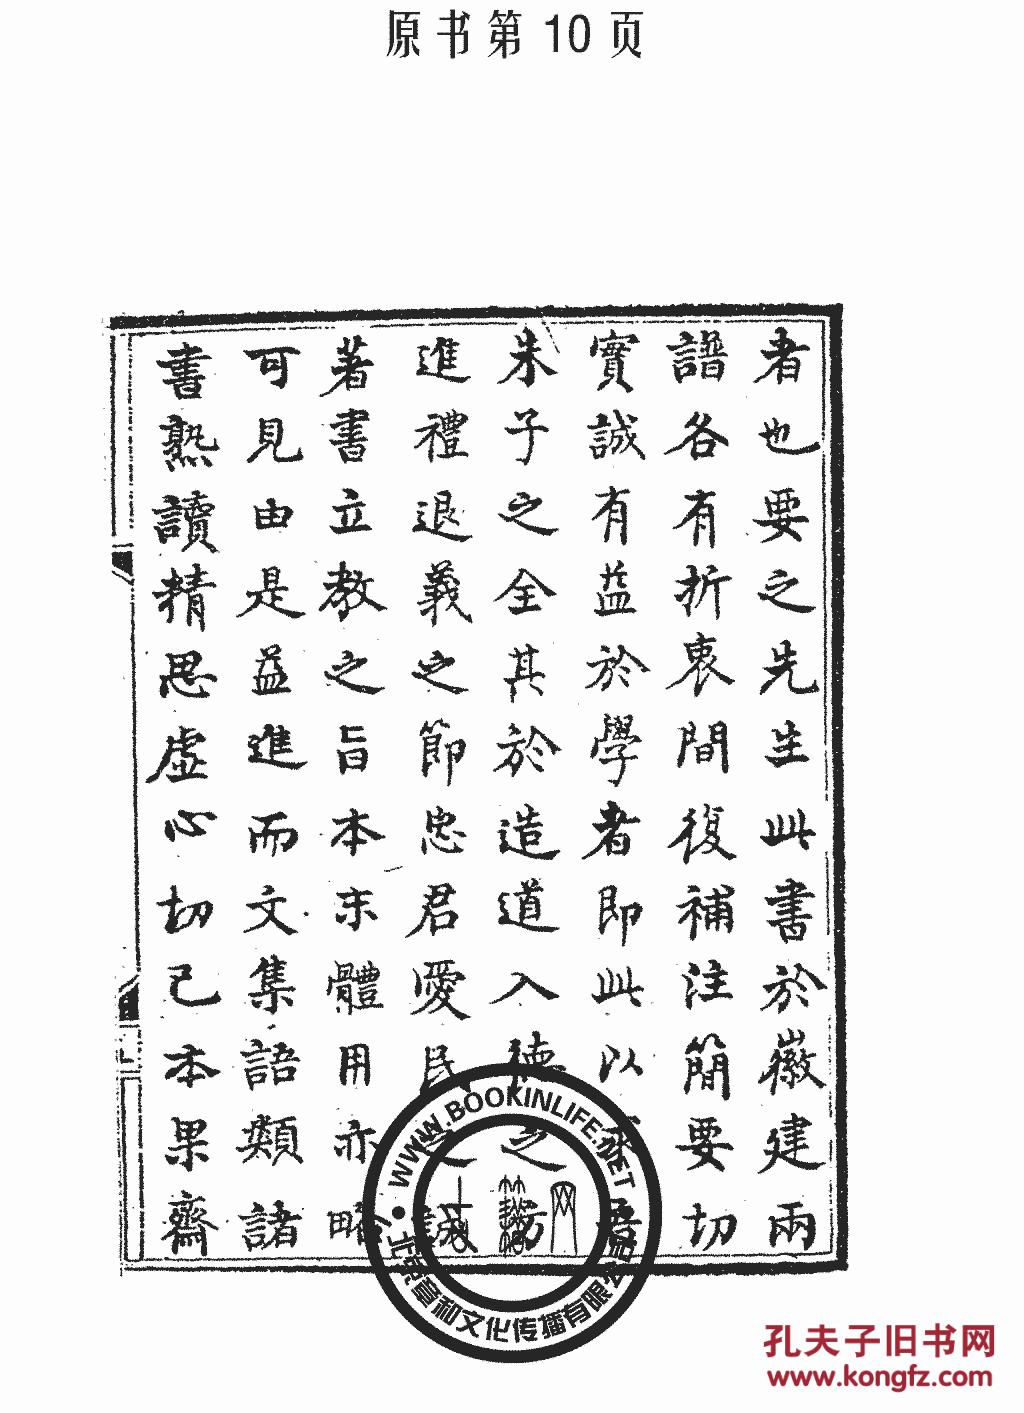 原书第10页
者也要之先生此書於徽建兩
譜各有折衷間復補注簡要切
實誠有益於學者即此以
朱子之全其於造道入德之方
進禮退義之節忠君愛民之誠
著書立教之旨本末體用亦略
可見由是益進而文集語類諸
書熟讀精思虛心切己本果齋
WWW.BOOKINLIFE.NET
北京章和文化传播有限公司
孔夫子旧书网
www.kongfz.com